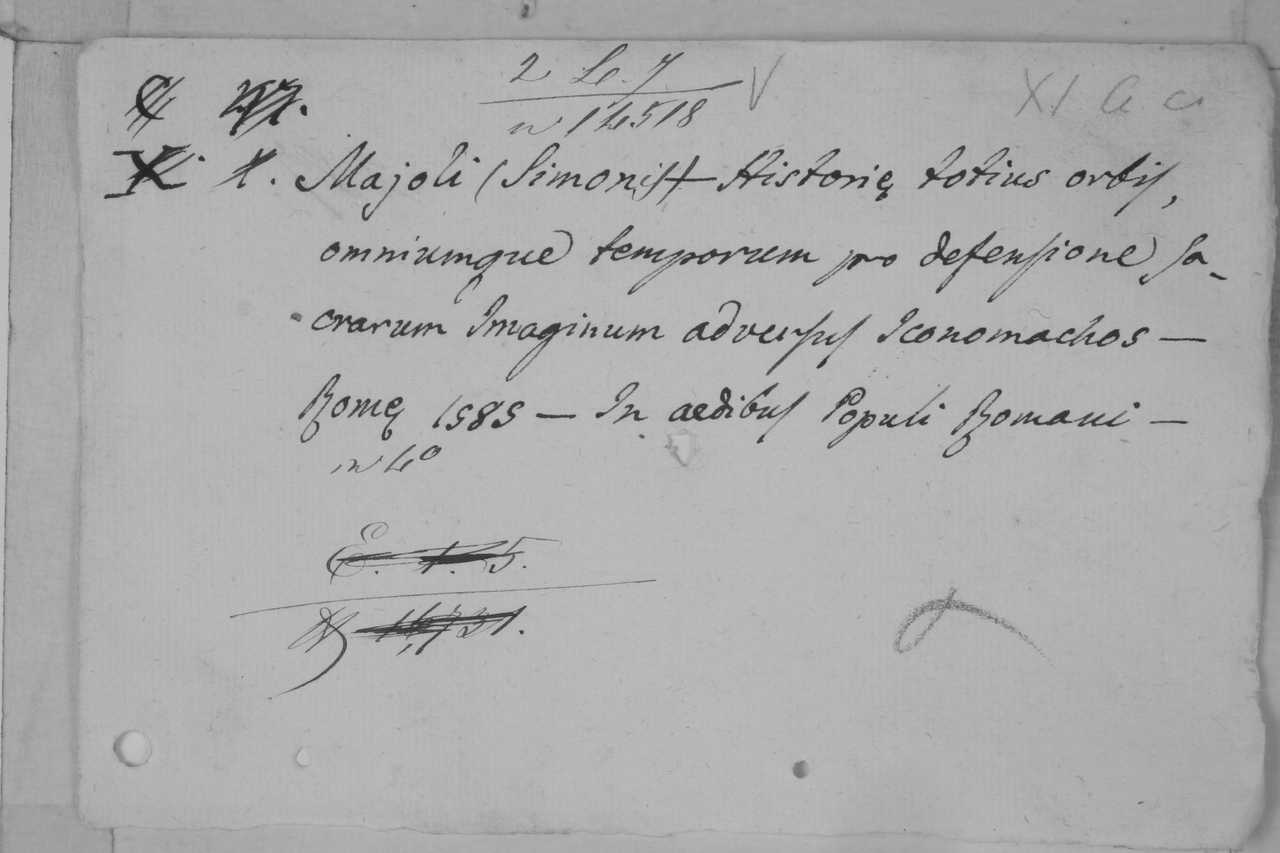 2 Lo. 7
n 14518
XI
Majoli (Simonis) Historię totius orbis,
omniumque temporum pro defensione sa-
crarum Imaginum adversus Iconomachos —
Romę 1585 — In aedibus Populi Romani —
in 4º
E. 1. 5.